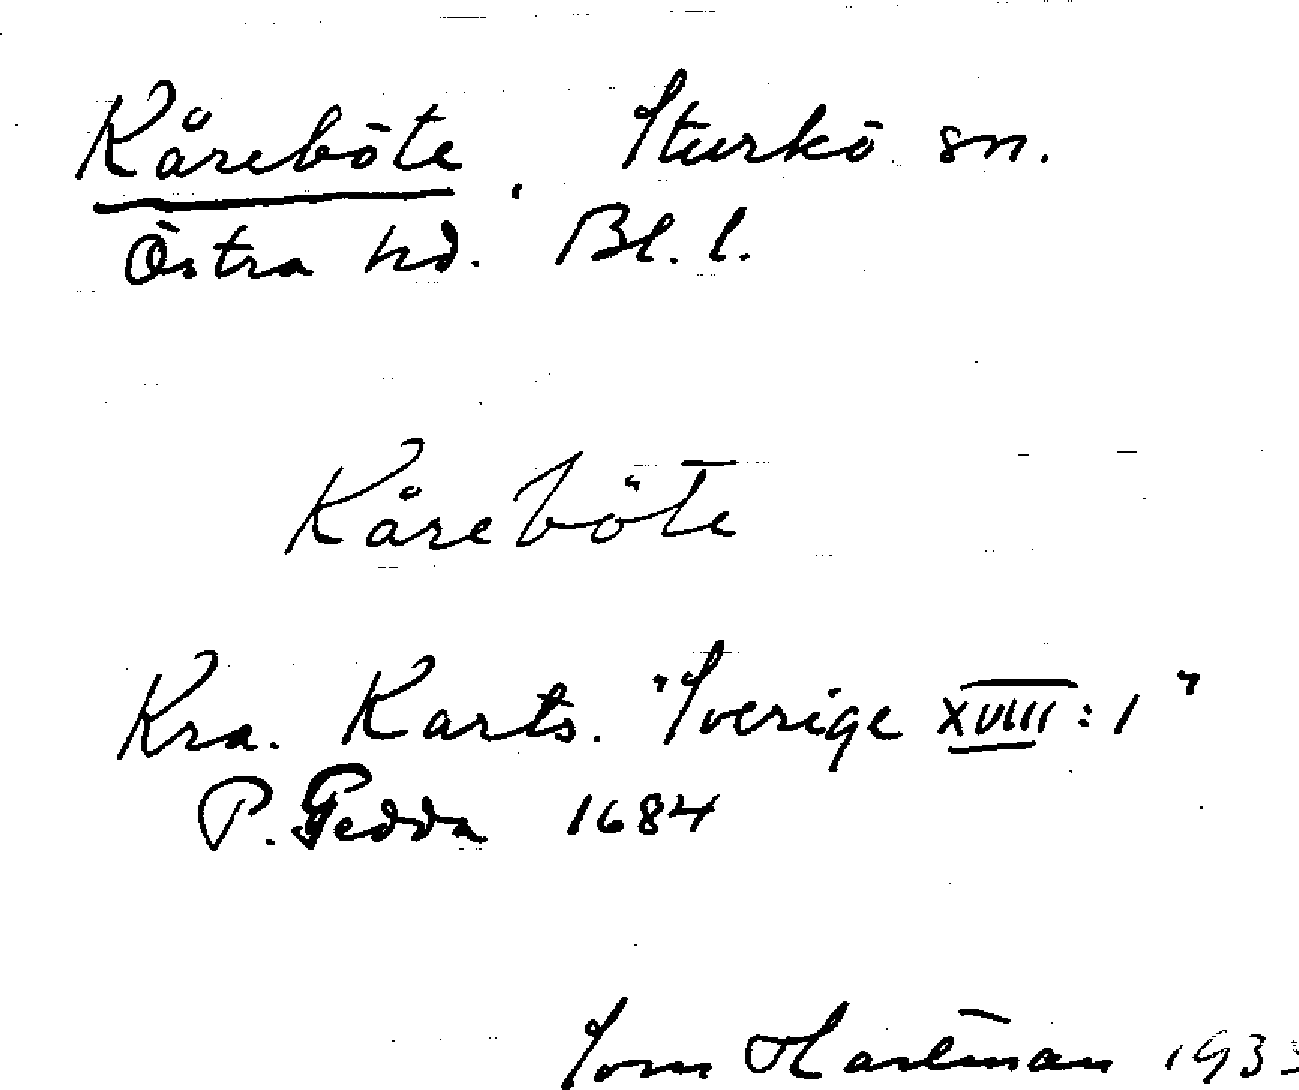 Kåreböte. Sturkö sn.
Östra hd. Bl. l.
Kåreböte
Kra. Karts. "Sverige XVIII:1"
P. Gedda 1684
Hartman